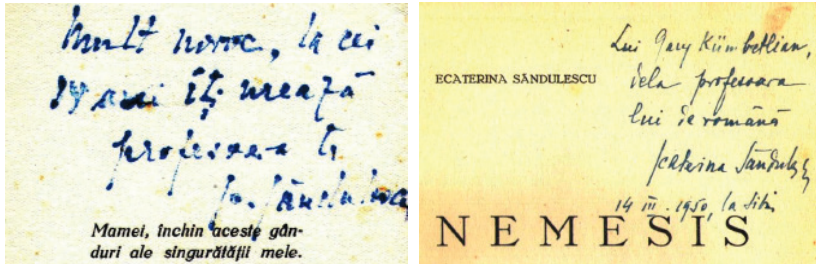 Mult noroc, la cei
14 ani îți urează
profesoara ta
Ec. Săndulescu
Mamei, închin aceste gân-
duri ale singurătății mele.
Lui Gary Kümbetlian,
dela profesoara
lui de română
Ecaterina Săndulescu
14 III. 1950, la Sibiu
ECATERINA SĂNDULESCU
NEMESIS